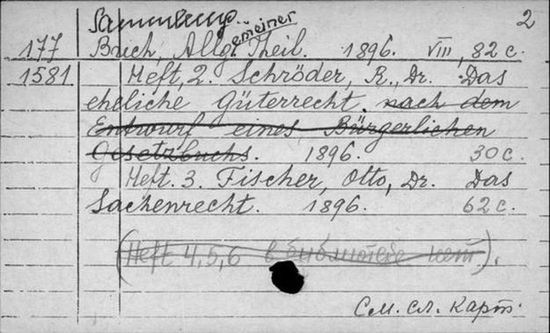 Sammlung. 2
177 Buch, Allg. emeiner Theil. 1896. VIII, 82 c.
1581 Heft, 2. Schröder, R., Dr. Das
eheliche Güterrecht. nach dem
Entwurf eines Bürgerlichen
Gesetzbuchs. 1896. 30 c.
Heft. 3. Fischer, Otto, Dr. Das
Sachenrecht. 1896. 62 c.
(Heft 4, 5, 6 в библиотеке нет).
См. сл. карт.